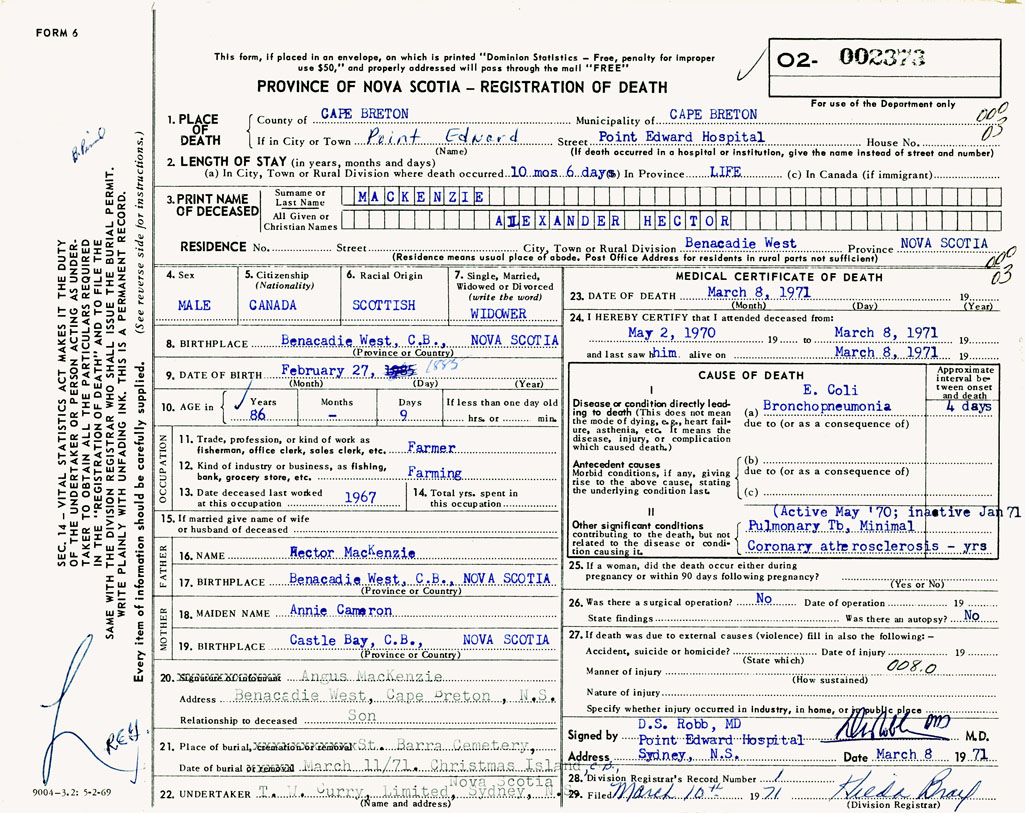 FORM 6
This form, if placed in an envelope, on which is printed "Dominion Statistics – Free, penalty for improper
use $50," and properly addressed will pass through the mail "FREE"
O2- 002373
For use of the Department only
PROVINCE OF NOVA SCOTIA – REGISTRATION OF DEATH
000
03
1. PLACE OF DEATH
County of CAPE BRETON Municipality of CAPE BRETON
If in City or Town Point Edward Street Point Edward Hospital House No.
(Name) (If death occurred in a hospital or institution, give the name instead of street and number)
2. LENGTH OF STAY (in years, months and days)
(a) In City, Town or Rural Division where death occurred 10 mos 6 day(s) In Province LIFE (c) In Canada (if immigrant)
3. PRINT NAME OF DECEASED
Surname or Last Name MACKENZIE
All Given or Christian Names ALEXANDER HECTOR
RESIDENCE No. Street City, Town or Rural Division Benacadie West Province NOVA SCOTIA
(Residence means usual place of abode. Post Office Address for residents in rural parts not sufficient)
000
03
4. Sex
MALE
5. Citizenship
(Nationality)
CANADA
6. Racial Origin
SCOTTISH
7. Single, Married,
Widowed or Divorced
(write the word)
WIDOWER
8. BIRTHPLACE Benacadie West, C.B., NOVA SCOTIA
(Province or Country)
9. DATE OF BIRTH February 27, 1885 1885
(Month) (Day) (Year)
10. AGE in Years Months Days If less than one day old
86 – 9 hrs. or min.
OCCUPATION
11. Trade, profession, or kind of work as
fisherman, office clerk, sales clerk, etc. Farmer
12. Kind of industry or business, as fishing,
bank, grocery store, etc. Farming
13. Date deceased last worked
at this occupation 1967
14. Total yrs. spent in
this occupation
15. If married give name of wife
or husband of deceased
FATHER
16. NAME Hector MacKenzie
17. BIRTHPLACE Benacadie West, C.B., NOVA SCOTIA
(Province or Country)
MOTHER
18. MAIDEN NAME Annie Cameron
19. BIRTHPLACE Castle Bay, C.B., NOVA SCOTIA
(Province or Country)
20. Signature of informant Angus MacKenzie
Address Benacadie West, Cape Breton, N.S.
Relationship to deceased Son
21. Place of burial, cremation or removal St. Barra Cemetery,
Date of burial or removal March 11/71. Christmas Island, C.B.,
Nova Scotia
22. UNDERTAKER T. W. Curry, Limited, Sydney, N.S.
(Name and address)
MEDICAL CERTIFICATE OF DEATH
23. DATE OF DEATH March 8, 1971 19
(Month) (Day) (Year)
24. I HEREBY CERTIFY that I attended deceased from:
May 2, 1970 19 to March 8, 1971 19
and last saw him alive on March 8, 1971 19
CAUSE OF DEATH
Approximate
interval be-
tween onset
and death
I
Disease or condition directly lead-
ing to death (This does not mean
the mode of dying, e.g., heart fail-
ure, asthenia, etc. It means the
disease, injury, or complication
which caused death.)
E. Coli
(a) Bronchopneumonia 4 days
due to (or as a consequence of)
Antecedent causes
Morbid conditions, if any, giving
rise to the above cause, stating
the underlying condition last.
(b)
due to (or as a consequence of)
(c)
II
Other significant conditions
contributing to the death, but not
related to the disease or condi-
tion causing it.
(Active May '70; inactive Jan 71
Pulmonary Tb, Minimal
Coronary atherosclerosis – yrs
25. If a woman, did the death occur either during
pregnancy or within 90 days following pregnancy?
(Yes or No)
26. Was there a surgical operation? No Date of operation 19
State findings Was there an autopsy? No
27. If death was due to external causes (violence) fill in also the following: –
Accident, suicide or homicide? Date of injury 19
(State which)
Manner of injury 008.0
(How sustained)
Nature of injury
Specify whether injury occurred in industry, in home, or in public place
Signed by D.S. Robb, MD
Point Edward Hospital M.D.
Address Sydney, N.S. Date March 8 19 71
28. Division Registrar's Record Number 1
29. Filed March 10th 19 71
(Division Registrar)
SEC. 14 – VITAL STATISTICS ACT MAKES IT THE DUTY
OF THE UNDERTAKER OR PERSON ACTING AS UNDER-
TAKER TO OBTAIN ALL THE PARTICULARS REQUIRED
IN THE "REGISTRATION OF DEATH" AND TO FILE THE
SAME WITH THE DIVISION REGISTRAR WHO SHALL ISSUE THE BURIAL PERMIT.
WRITE PLAINLY WITH UNFADING INK. THIS IS A PERMANENT RECORD.
Every item of information should be carefully supplied. (See reverse side for instructions.)
9004-3.2: 5-2-69